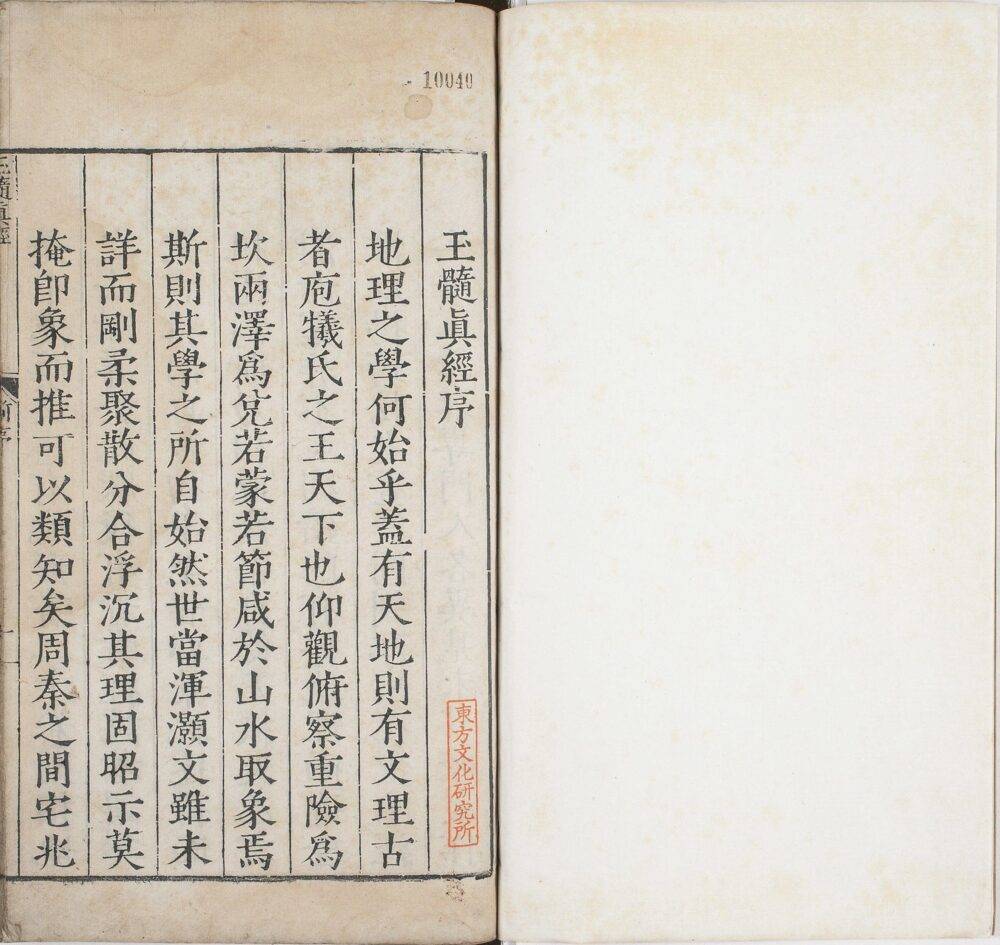 10040
玉髓眞經序
東方文化研究所
地理之學何始乎蓋有天地則有文理古
者庖犧氏之王天下也仰觀俯察重險爲
坎兩澤爲兌若蒙若節咸於山水取象焉
斯則其學之所自始然世當渾灝文雖未
詳而剛柔聚散分合浮沉其理固昭示莫
掩卽象而推可以類知矣周秦之間宅兆
玉髓眞經
前序
一